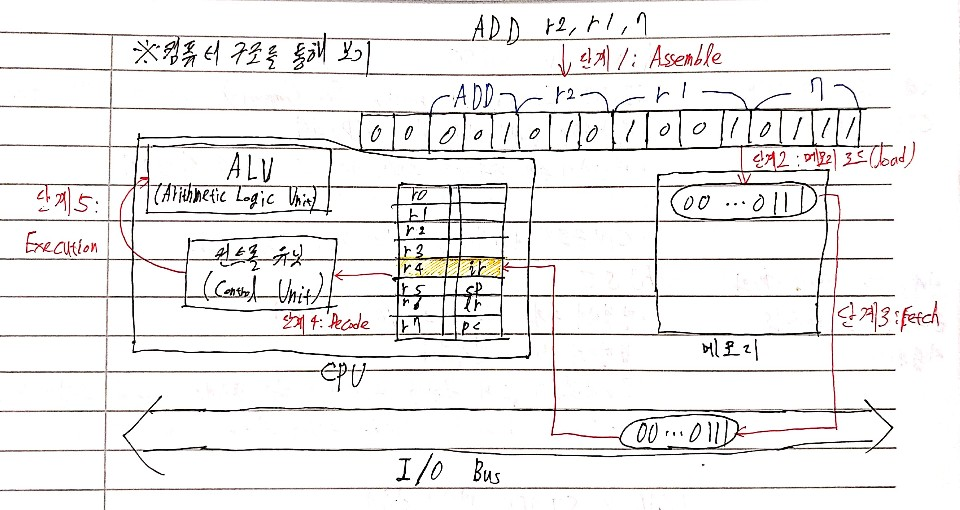 ADD r2, r1, 7
※컴퓨터 구조를 통해 보기
단계1: Assemble
ADD r2 r1 7
0 0 0 0 1 0 1 0 1 0 0 1 0 1 1 1
단계2: 메모리 로드(load)
ALU
(Arithmetic Logic Unit)
단계5:
Execution
컨트롤 유닛
(Control Unit)
단계4: Decode
r0
r1
r2
r3
r4 ir
r5 sp
r6 lr
r7 pc
CPU
00 ... 0111
메모리
단계3: Fetch
00 ... 0111
I/O Bus